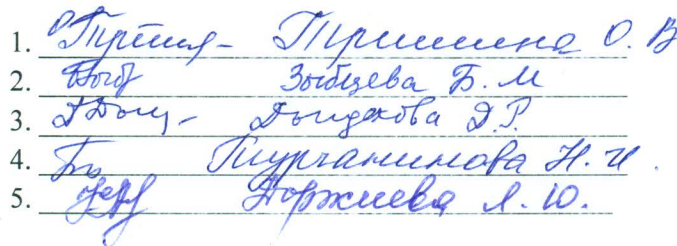 1. Тришина О. В
2. Зыбцева Б. М
3. Дондокова Д. Р.
4. Турчанинова Н. И.
5. Доржиева Л. Ю.